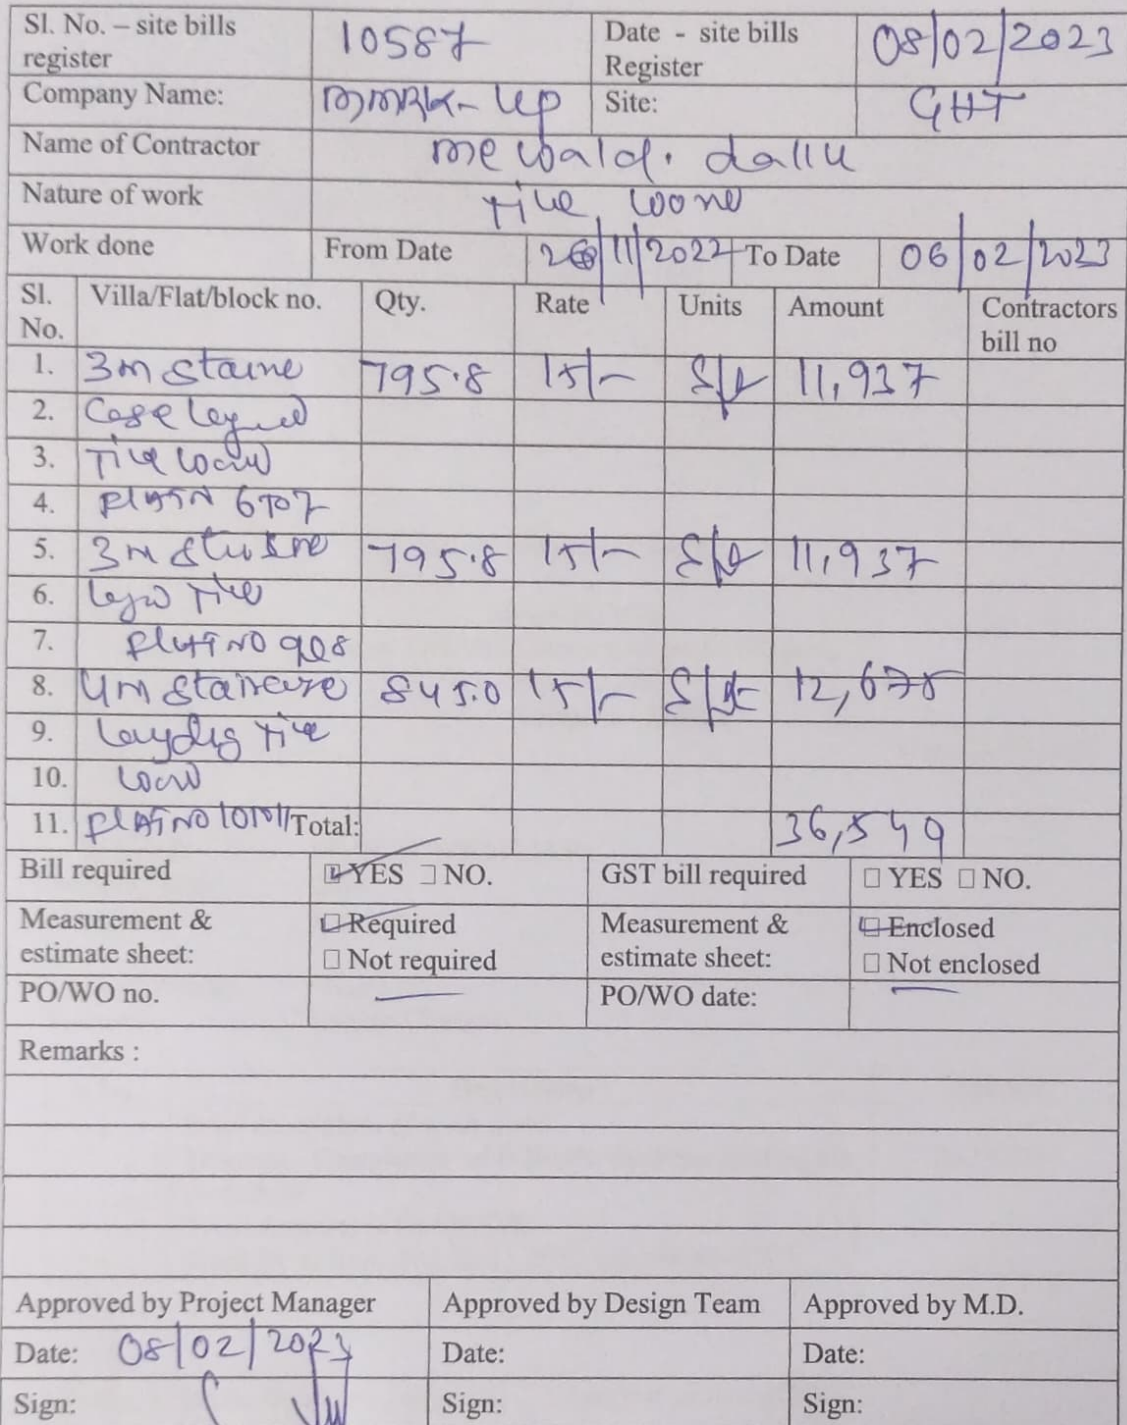 Sl. No. – site bills register 10587 Date - site bills Register 08/02/2023
Company Name: MMRK-LLP Site: GHT
Name of Contractor mewalal. dallu
Nature of work Tile
Work done From Date /11/2022 To Date 06/02/2023
Sl. No. Villa/Flat/block no. Qty. Rate Units Amount Contractors bill no
1. 3m 795.8 15/- S/ft 11,937
2. Case
3. Tile
4. 6 TO 7
5. 3m 795.8 15/- S/ft 11,937
6. Tile
7. NO
8. 4m Staircase 845.0 15/- S/ft 12,675
9. Tile
10.
11. Flat NO 10 TO 11 Total: 36,549
Bill required ☑ YES ☐ NO. GST bill required ☐ YES ☐ NO.
Measurement & estimate sheet: ☑ Required ☐ Not required Measurement & estimate sheet: ☑ Enclosed ☐ Not enclosed
PO/WO no. — PO/WO date: —
Remarks :
Approved by Project Manager Approved by Design Team Approved by M.D.
Date: 08/02/2023 Date: Date:
Sign: Sign: Sign: